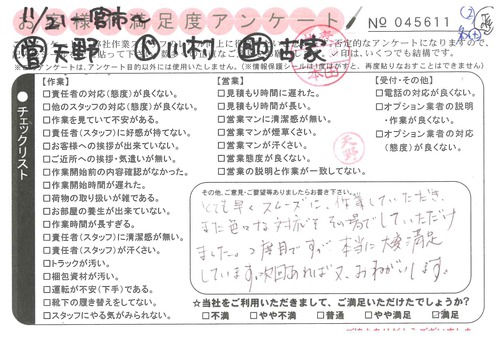 11/21 一宮市
お客様満足度アンケート
No 045611
営 矢野 小川 古家
矢野
チェックリスト
【作業】
□責任者の対応(態度)が良くない。
□他のスタッフの対応(態度)が良くない。
□作業を見ていて不安がある。
□責任者(スタッフ)に好感が持てない。
□お客様への挨拶が出来ていない。
□ご近所への挨拶・気遣いが無い。
□作業開始前の内容確認がなかった。
□作業開始時間が遅れた。
□荷物の取り扱いが雑である。
□お部屋の養生が出来ていない。
□作業時間が長すぎる。
□責任者(スタッフ)に清潔感が無い。
□責任者(スタッフ)が汗くさい。
□トラックが汚い。
□梱包資材が汚い。
□運転が不安(下手)である。
□靴下の履き替えをしてない。
□スタッフにやる気がみられない。
【営業】
□見積もり時間に遅れた。
□見積もり時間が長い。
□営業マンに清潔感が無い。
□営業マンが煙草くさい。
□営業マンが汗くさい。
□営業態度が良くない。
□営業の説明と作業が一致してない。
【受付・その他】
□電話の対応が良くない。
□オプション業者の説明
・作業が良くない。
□オプション業者の対応
(態度)が良くない。
その他、ご意見・ご要望等ありましたらお書き下さい。
とても早くスムーズに、作業していただき、
また色々な対応をその場でしていただけ
ました。2度目ですが本当に大変満足
しています。次回あれば又、おねがいします。
☆当社をご利用いただきまして、ご満足いただけたでしょうか?
□不満 □やや不満 □普通 □やや満足 □満足